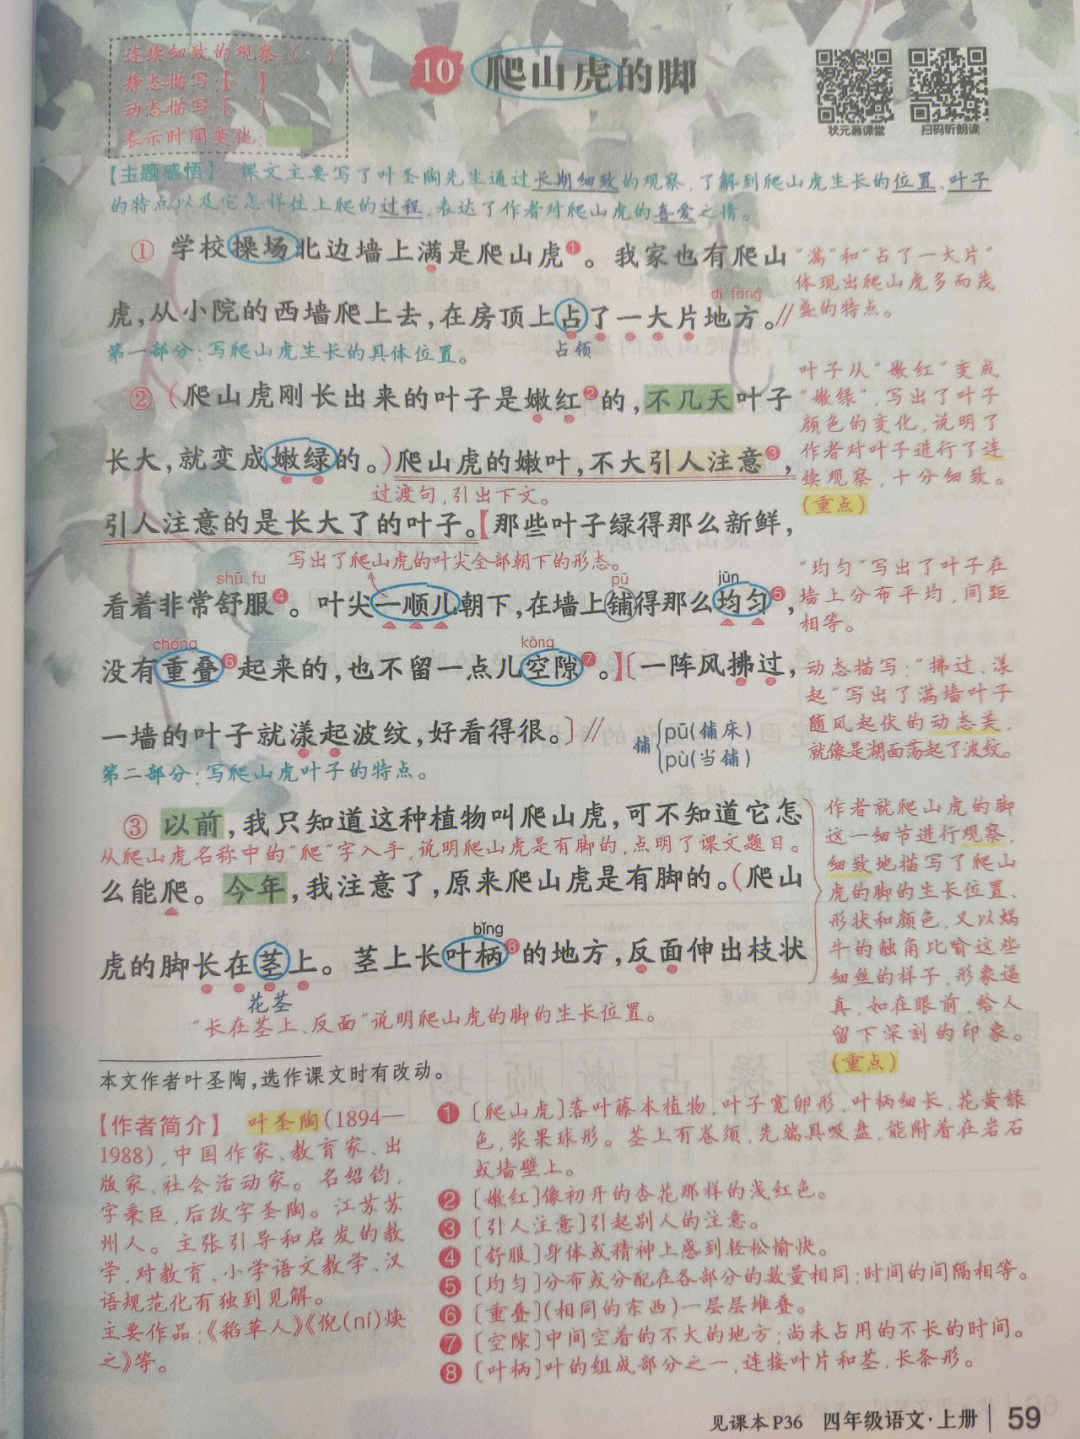 连续细致的观察:( )
静态描写:【 】
动态描写:〔 〕
表示时间变化:
10 爬山虎的脚
状元慕课堂
扫码听朗读
【主题感悟】 课文主要写了叶圣陶先生通过长期细致的观察,了解到爬山虎生长的位置、叶子
的特点以及它怎样往上爬的过程,表达了作者对爬山虎的喜爱之情。
① 学校操场北边墙上满是爬山虎❶。我家也有爬山
dì fang
虎,从小院的西墙爬上去,在房顶上占了一大片地方。//
第一部分:写爬山虎生长的具体位置。
占领
“满”和“占了一大片”
体现出爬山虎多而茂
盛的特点。
②(爬山虎刚长出来的叶子是嫩红❷的,不几天叶子
长大,就变成嫩绿的。)爬山虎的嫩叶,不大引人注意❸,
过渡句,引出下文。
引人注意的是长大了的叶子。【那些叶子绿得那么新鲜,
写出了爬山虎的叶尖全部朝下的形态。
shū fu
pū
jūn
看着非常舒服❹。叶尖一顺儿朝下,在墙上铺得那么均匀❺,
chóng
kòng
没有重叠❻起来的,也不留一点儿空隙❼。】〔一阵风拂过,
一墙的叶子就漾起波纹,好看得很。〕//
第二部分:写爬山虎叶子的特点。
铺
pū(铺床)
pù(当铺)
叶子从“嫩红”变成
“嫩绿”,写出了叶子
颜色的变化,说明了
作者对叶子进行了连
续观察,十分细致。
(重点)
“均匀”写出了叶子在
墙上分布平均,间距
相等。
动态描写:“拂过、漾
起”写出了满墙叶子
随风起伏的动态美,
就像是湖面荡起了波纹。
③ 以前,我只知道这种植物叫爬山虎,可不知道它怎
从爬山虎名称中的“爬”字入手,说明爬山虎是有脚的,点明了课文题目。
么能爬。今年,我注意了,原来爬山虎是有脚的。(爬山
bǐng
虎的脚长在茎上。茎上长叶柄❽的地方,反面伸出枝状
花茎
“长在茎上、反面”说明爬山虎的脚的生长位置。
作者就爬山虎的脚
这一细节进行观察,
细致地描写了爬山
虎的脚的生长位置、
形状和颜色,又以蜗
牛的触角比喻这些
细丝的样子,形象逼
真,如在眼前,给人
留下深刻的印象。
(重点)
本文作者叶圣陶,选作课文时有改动。
【作者简介】 叶圣陶(1894—
1988),中国作家、教育家、出
版家、社会活动家。名绍钧,
字秉臣,后改字圣陶。江苏苏
州人。主张引导和启发的教
学,对教育、小学语文教学、汉
语规范化有独到见解。
主要作品:《稻草人》《倪(ní)焕
之》等。
❶〔爬山虎〕落叶藤本植物,叶子宽卵形,叶柄细长,花黄绿
色,浆果球形。茎上有卷须,先端具吸盘,能附着在岩石
或墙壁上。
❷〔嫩红〕像初开的杏花那样的浅红色。
❸〔引人注意〕引起别人的注意。
❹〔舒服〕身体或精神上感到轻松愉快。
❺〔均匀〕分布或分配在各部分的数量相同;时间的间隔相等。
❻〔重叠〕(相同的东西)一层层堆叠。
❼〔空隙〕中间空着的不大的地方;尚未占用的不长的时间。
❽〔叶柄〕叶的组成部分之一,连接叶片和茎,长条形。
见课本P36 四年级语文·上册 59